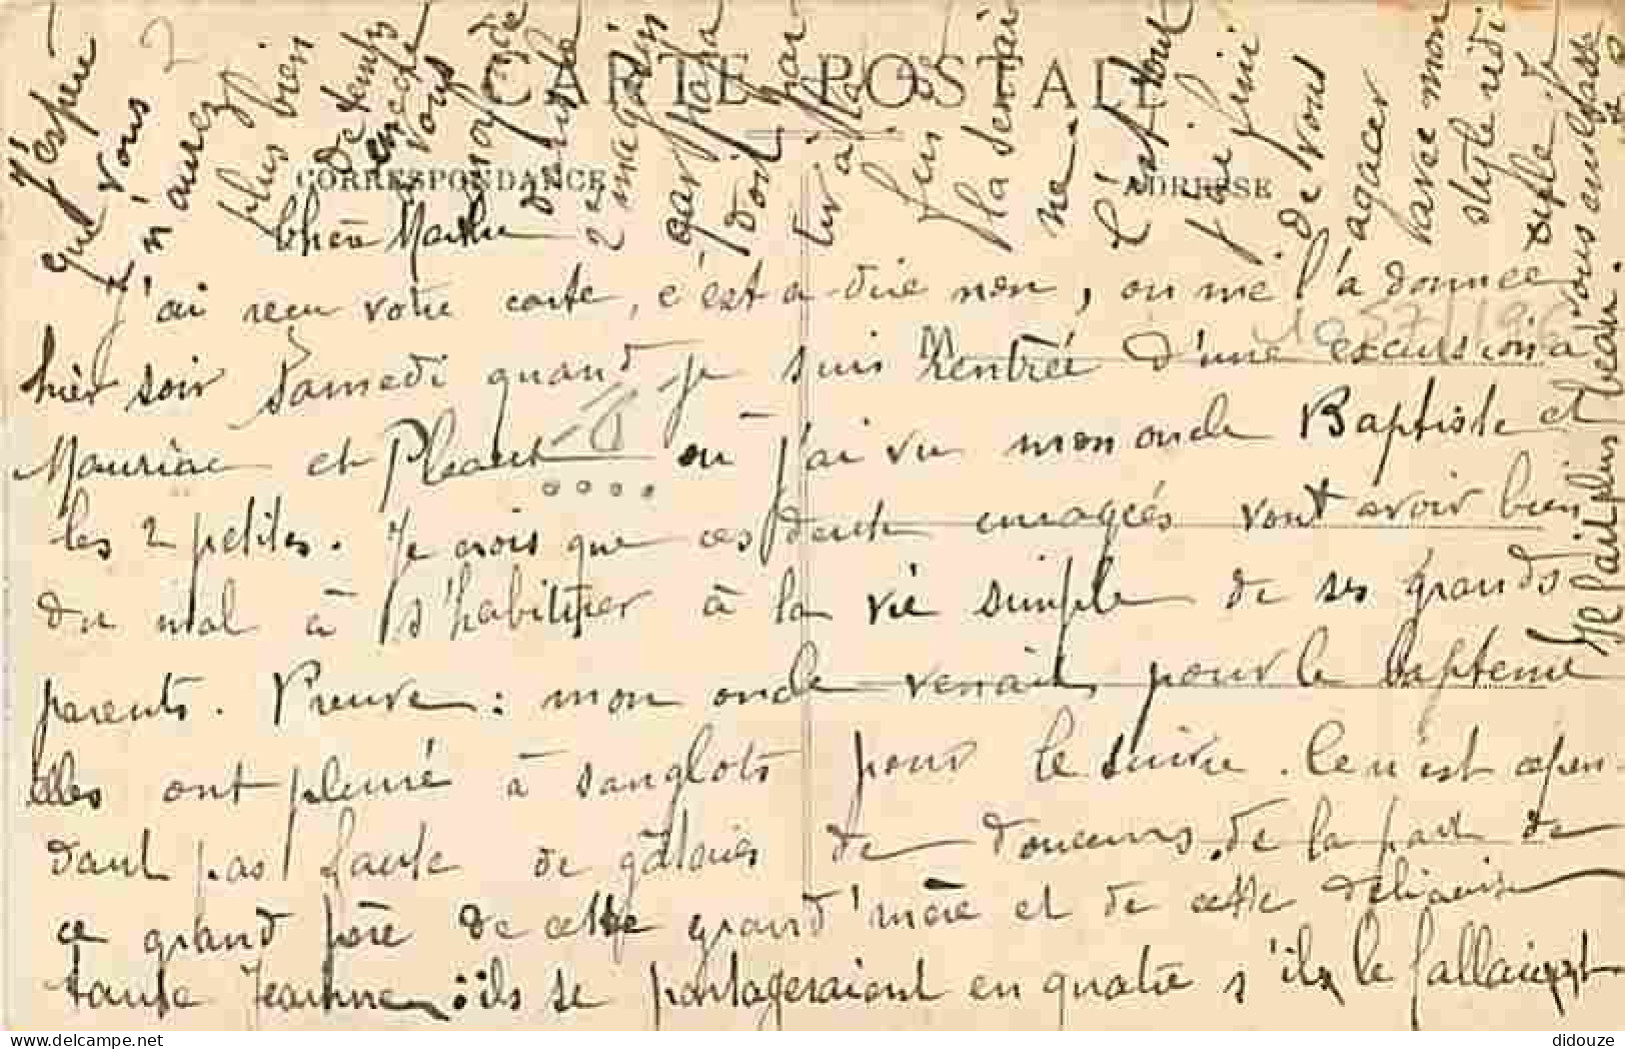 CARTE POSTALE
CORRESPONDANCE
ADRESSE
Chère Marthe
J'ai reçu votre carte, c'est a dire non, on me l'a donnée
hier soir Samedi quand je suis rentrée d'une excursion à
Mauriac et Pleaux où j'ai vu mon oncle Baptiste et
les 2 petites. Je crois que ces deux enragées vont avoir bien
du mal à s'habituer à la vie simple de ses grands
parents. Preuve : mon oncle venait pour le baptême
elles ont pleuré à sanglots pour le suivre. Ce n'est cepen-
dant pas faute de gâteries de douceurs de la part de
ce grand père de cette grand'mère et de cette délicieuse
tante Jeanne : ils se partageraient en quatre s'ils le fallait
J'espère
que vous
n'aurez
plus bien
plus
de temps
vous
2 magasin
car Papa
doit par
tir a la
fin de
la semai
ne.
C'est tout
j'ai fini
de vous
agacer
avec mon
style
Je
vous embrasse
Il fait plus beau.
didouze